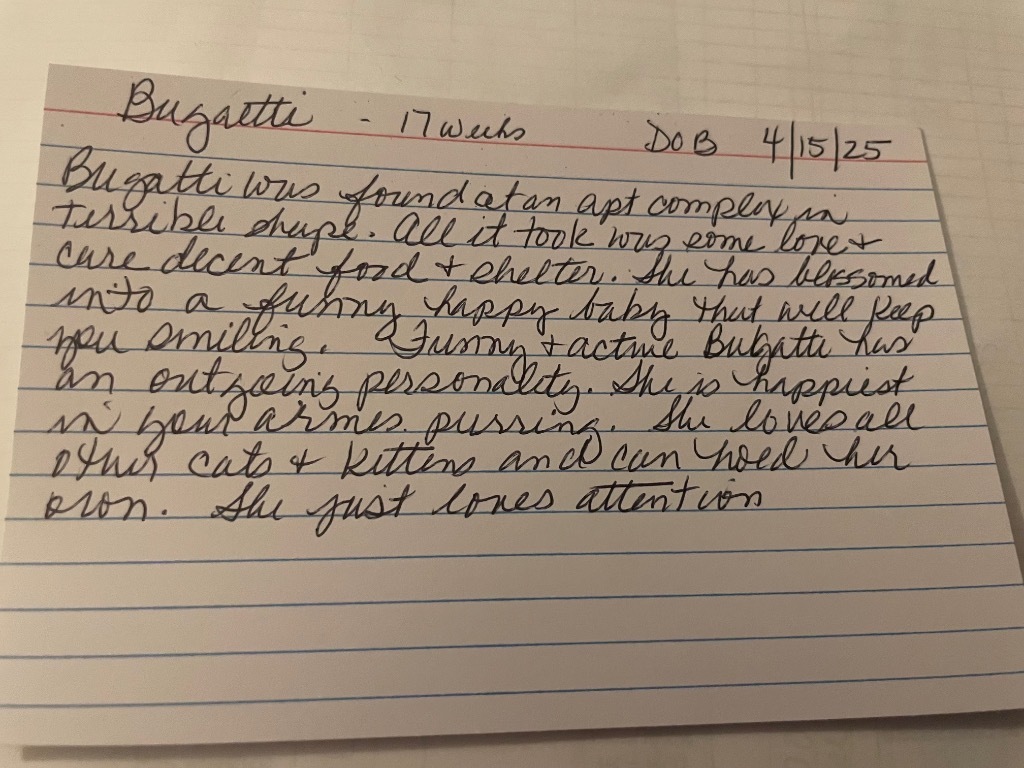 Bugaetti - 17 weeks DOB 4/15/25
Bugatti was found at an apt complex in
terrible shape. All it took was some love +
care decent food + shelter. She has blossomed
into a funny happy baby that will keep
you smiling. Funny + active Bugatti has
an outgoing personality. She is happiest
in your armes purring. She loves all
other cats & kittens and can hold her
own. She just loves attention